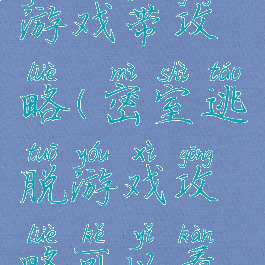 游戏带攻
lüè mì shì táo
略(密室逃
tuō yóu xì gōng
脱游戏攻
lüè kě yǐ kàn
略可以看